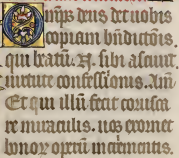 Omps deus det uobis
copiam bn̄dictionis
qui beatum .N. sibi asciuit
uirtute confessionis. Am̄
Et qui illū fecit corusca
re miraculis. uos exornet
bonoꝝ opeꝝ incrementis.